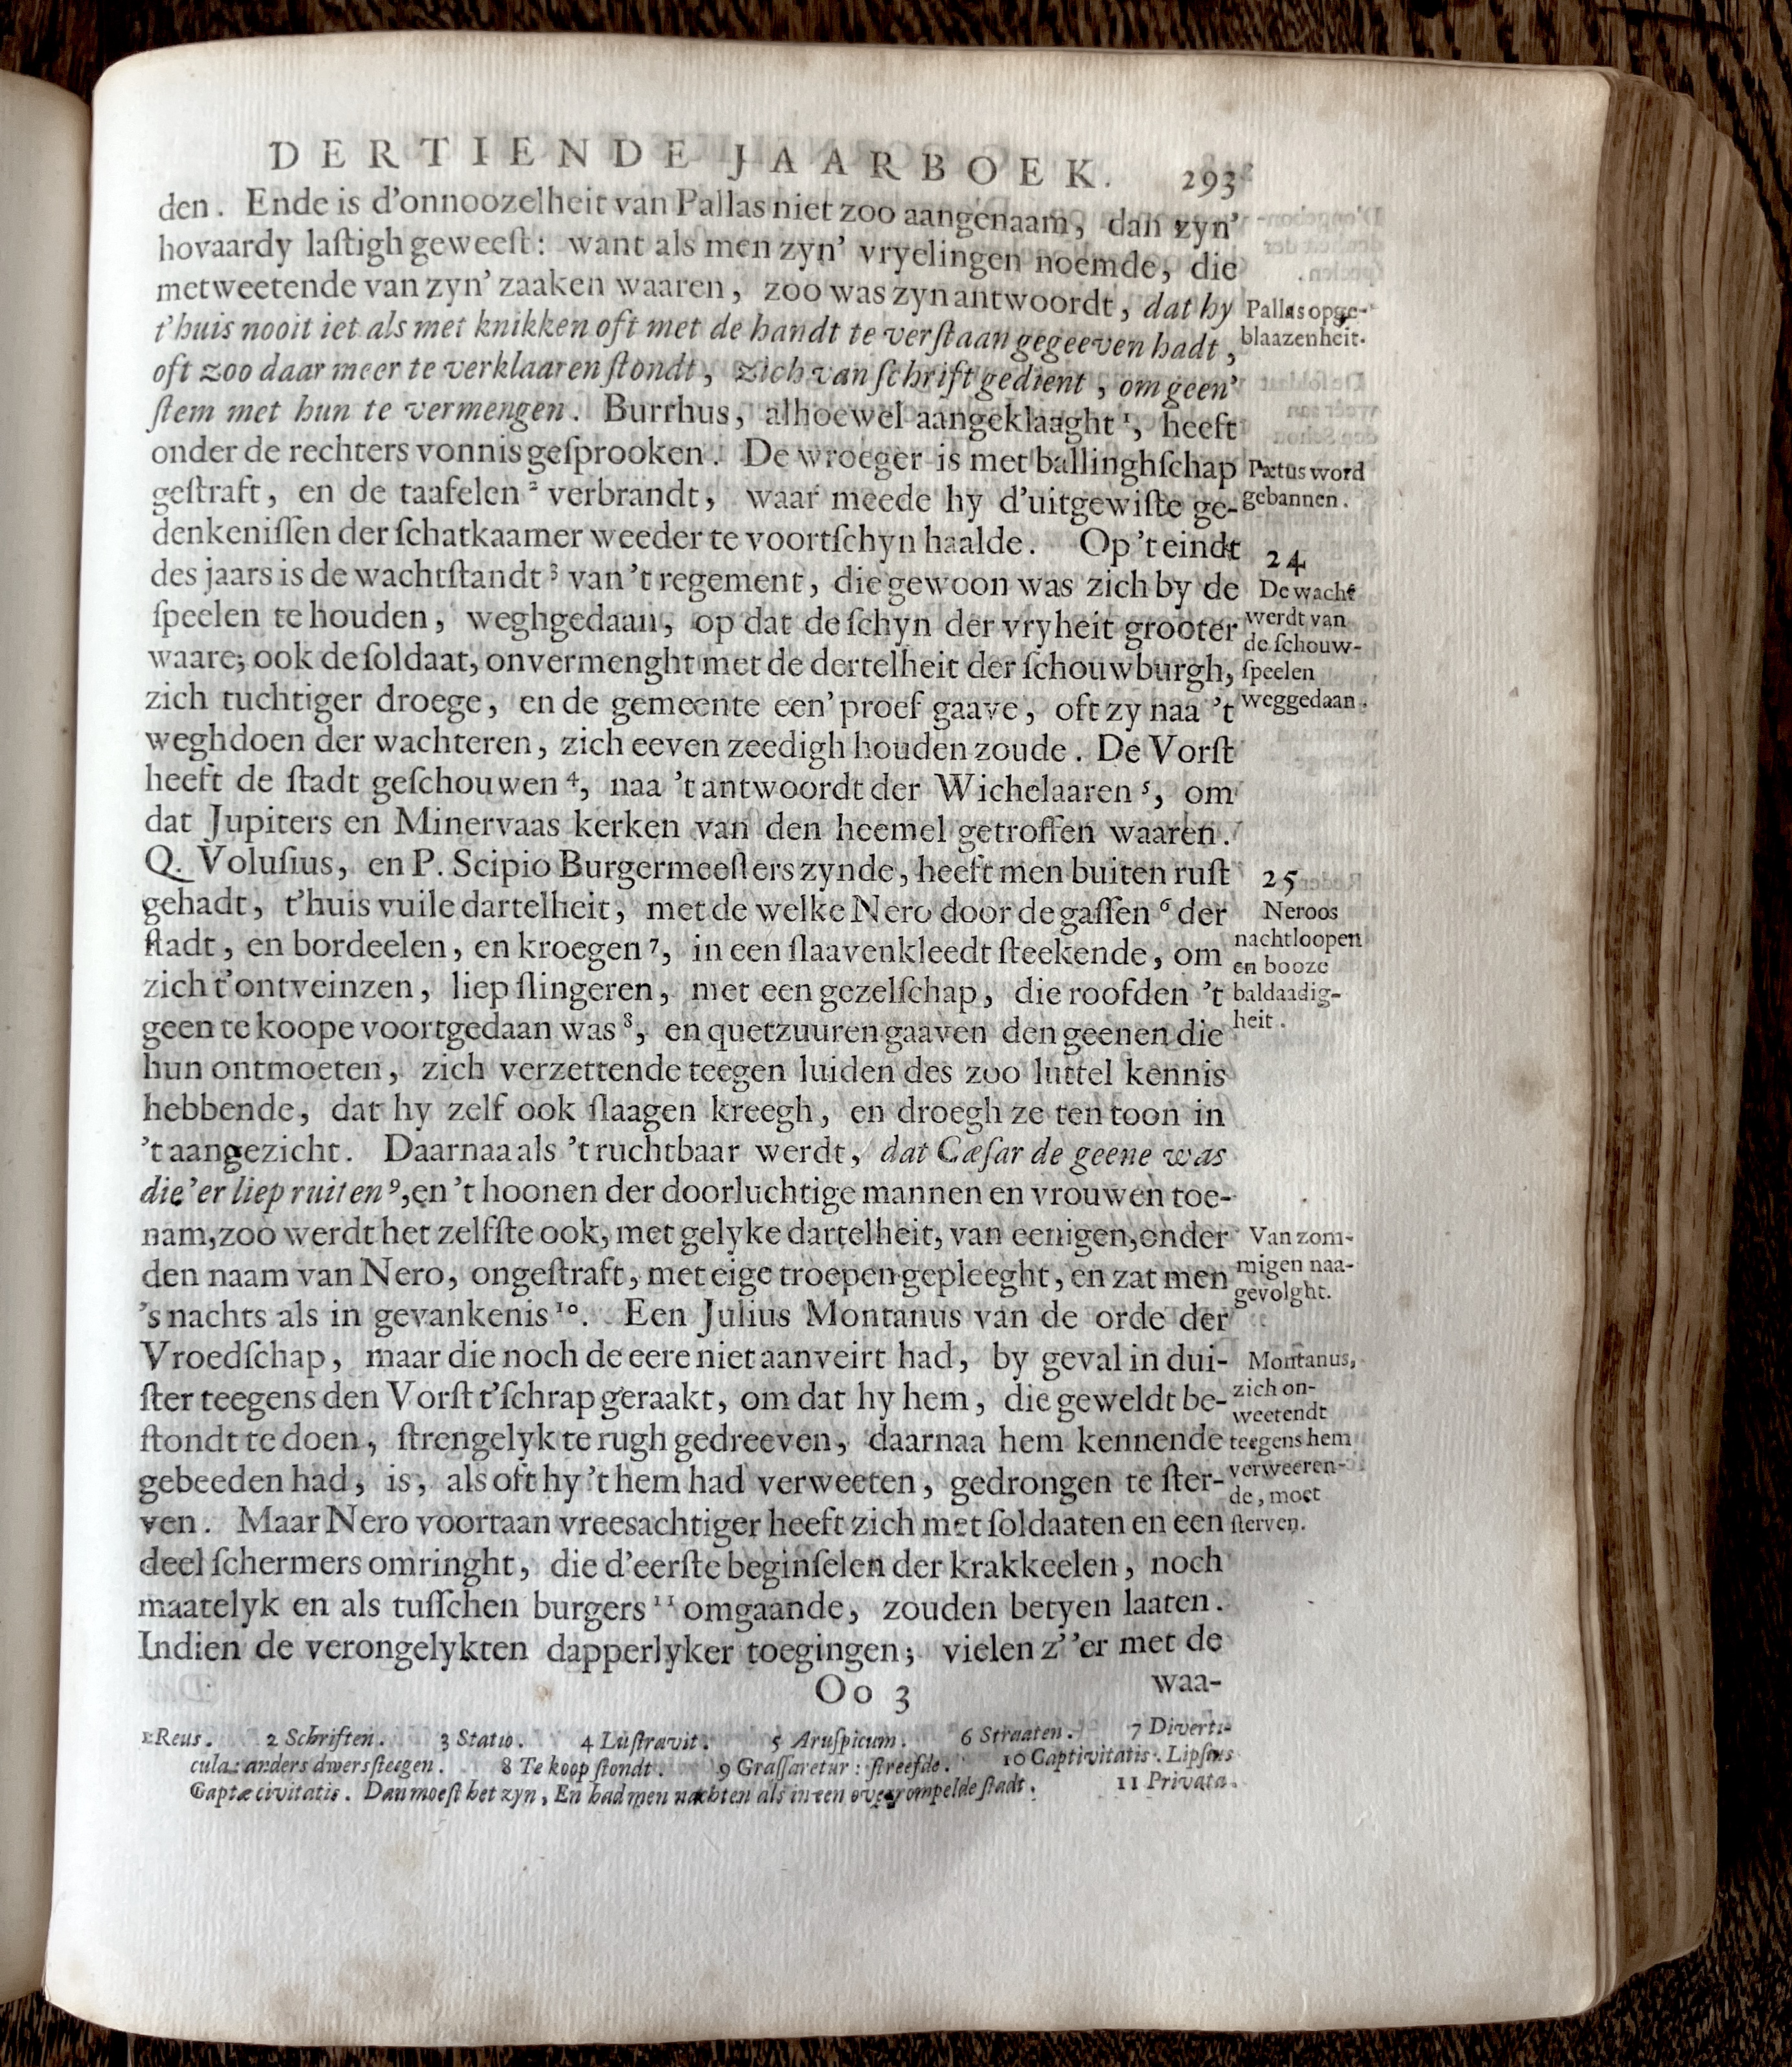 DERTIENDE JAARBOEK. 293
den. Ende is d'onnoozelheit van Pallas niet zoo aangenaam, dan zyn'
hovaardy laſtigh geweeſt: want als men zyn' vryelingen noemde, die
metweetende van zyn' zaaken waaren, zoo was zyn antwoordt, dat hy
t'huis nooit iet als met knikken oft met de handt te verſtaan gegeeven hadt,
oft zoo daar meer te verklaaren ſtondt, zich van ſchrift gedient, om geen'
ſtem met hun te vermengen. Burrhus, alhoewel aangeklaaght ¹, heeft
onder de rechters vonnis geſprooken. De wroeger is met ballinghſchap
geſtraft, en de taafelen ² verbrandt, waar meede hy d'uitgewiſte ge-
denkeniſſen der ſchatkaamer weeder te voortſchyn haalde. Op 't eindt
des jaars is de wachtſtandt ³ van 't regement, die gewoon was zich by de
ſpeelen te houden, weghgedaan, op dat de ſchyn der vryheit grooter
waare; ook de ſoldaat, onvermenght met de dertelheit der ſchouwburgh,
zich tuchtiger droege, en de gemeente een' proef gaave, oft zy naa 't
weghdoen der wachteren, zich eeven zeedigh houden zoude. De Vorſt
heeft de ſtadt geſchouwen ⁴, naa 't antwoordt der Wichelaaren ⁵, om
dat Jupiters en Minervaas kerken van den heemel getroffen waaren.
Q. Voluſius, en P. Scipio Burgermeeſters zynde, heeft men buiten ruſt
gehadt, t'huis vuile dartelheit, met de welke Nero door de gaſſen ⁶ der
ſtadt, en bordeelen, en kroegen ⁷, in een ſlaavenkleedt ſteekende, om
zich t'ontveinzen, liep ſlingeren, met een gezelſchap, die roofden 't
geen te koope voortgedaan was ⁸, en quetzuuren gaaven den geenen die
hun ontmoeten, zich verzettende teegen luiden des zoo luttel kennis
hebbende, dat hy zelf ook ſlaagen kreegh, en droegh ze ten toon in
't aangezicht. Daarnaa als 't ruchtbaar werdt, dat Cæſar de geene was
die 'er liep ruiten ⁹, en 't hoonen der doorluchtige mannen en vrouwen toe-
nam, zoo werdt het zelfſte ook, met gelyke dartelheit, van eenigen, onder
den naam van Nero, ongeſtraft, met eige troepen gepleeght, en zat men
's nachts als in gevankenis ¹⁰. Een Julius Montanus van de orde der
Vroedſchap, maar die noch de eere niet aanveirt had, by geval in dui-
ſter teegens den Vorſt t'ſchrap geraakt, om dat hy hem, die geweldt be-
ſtondt te doen, ſtrengelyk te rugh gedreeven, daarnaa hem kennende
gebeeden had, is, als oft hy 't hem had verweeten, gedrongen te ſter-
ven. Maar Nero voortaan vreesachtiger heeft zich met ſoldaaten en een
deel ſchermers omringht, die d'eerſte beginſelen der krakkeelen, noch
maatelyk en als tuſſchen burgers ¹¹ omgaande, zouden betyen laaten.
Indien de verongelykten dapperlyker toegingen; vielen z' 'er met de
Oo 3 waa-
Pallas opge-
blaazenheit.
Pætus word
gebannen.
24
De wacht
werdt van
de ſchouw-
ſpeelen
weggedaan.
25
Neroos
nachtloopen
en booze
baldaadig-
heit.
Van zom-
migen naa-
gevolght.
Montanus,
zich on-
weetendt
teegens hem
verweeren-
de, moet
ſterven.
1 Reus. 2 Schriften. 3 Statio. 4 Luſtravit. 5 Aruſpicum. 6 Straaten. 7 Diverti-
cula: anders dwersſteegen. 8 Te koop ſtondt. 9 Graſſaretur: ſtreefde. 10 Captivitatis. Lipſius
Captæ civitatis. Dan moeſt het zyn, En had men nachten als in een overrompelde ſtadt. 11 Privata.